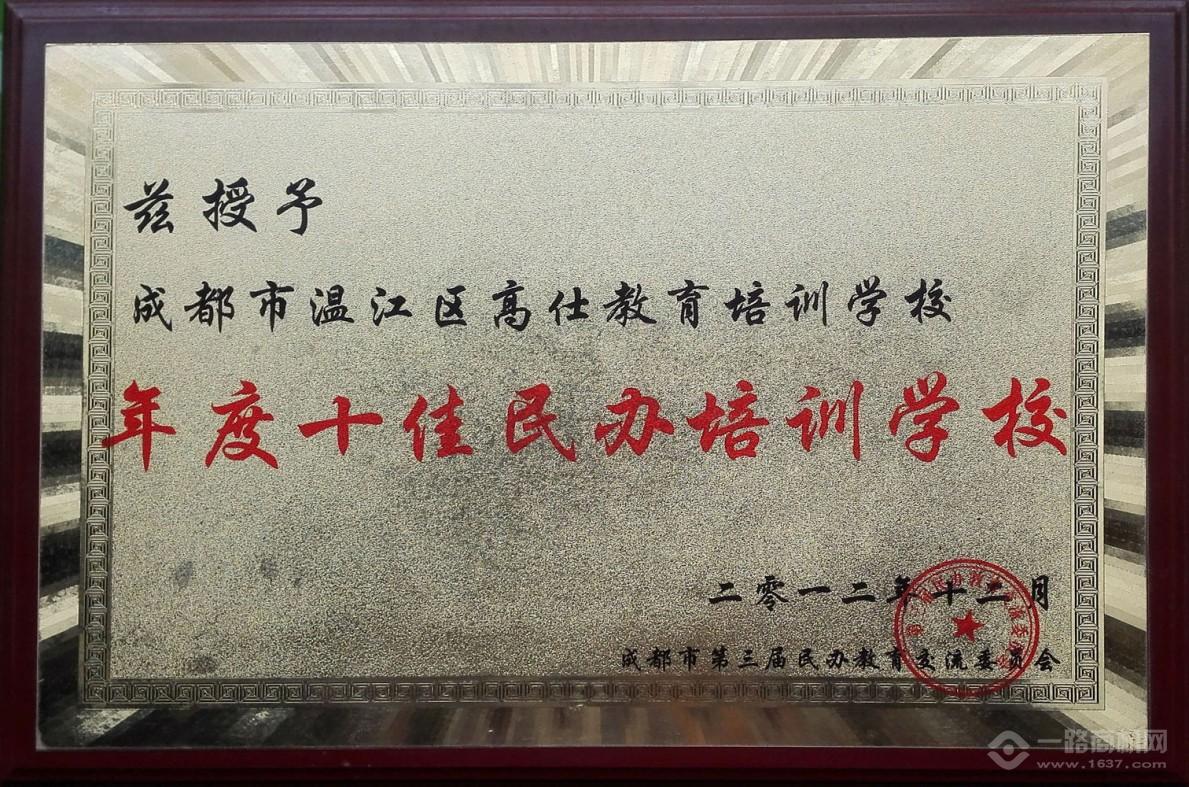 兹授予
成都市温江区高仕教育培训学校
年度十佳民办培训学校
二零一二年十二月
成都市第三届民办教育交流委员会
一路商机网
www.1637.com